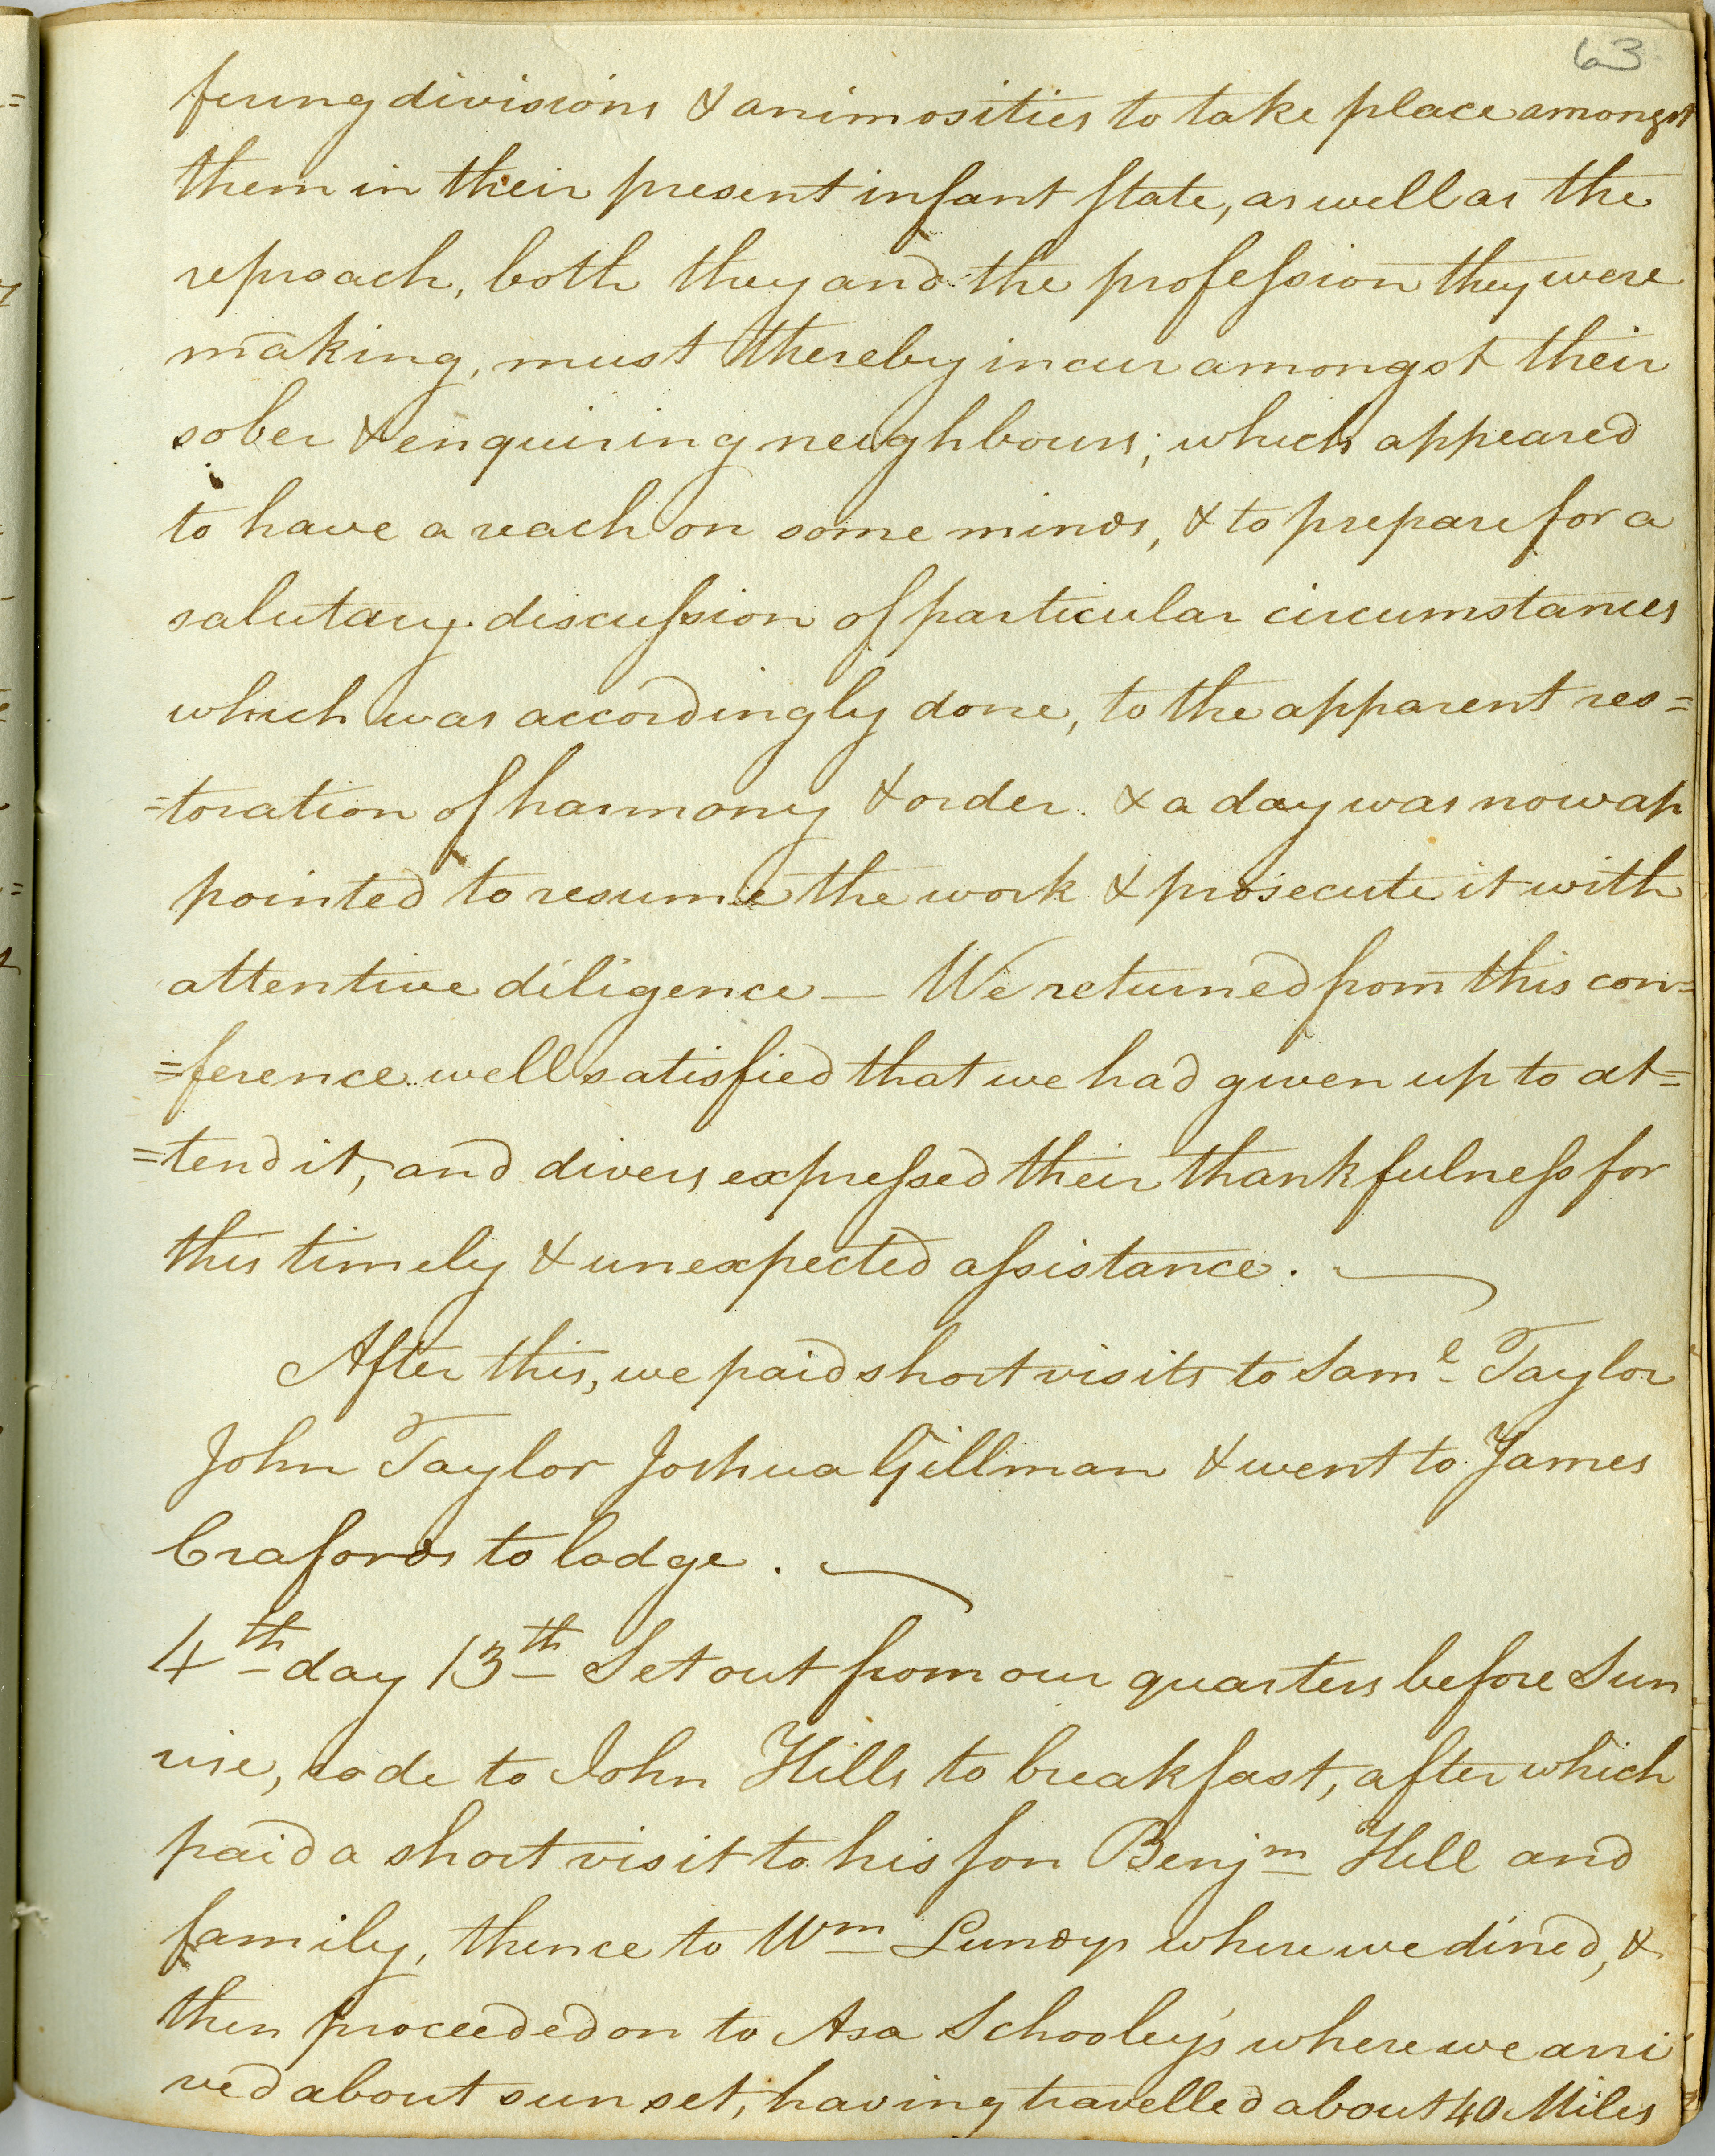 63
fering divisions & animosities to take place amongst
them in their present infant State, as well as the
reproach, both they and the profession they were
making, must thereby incur amongst their
sober & enquiring neighbours; which appeared
to have a reach on some minds, & to prepare for a
salutary discussion of particular circumstances
which was accordingly done, to the apparent res=
=toration of harmony & order. & a day was now ap
pointed to resume the work & prosecute it with
attentive diligence — We returned from this con=
=ference well satisfied that we had given up to at=
=tend it, and divers expressed their thankfulness for
this timely & unexpected assistance.
After this, we paid short visits to Saml Taylor
John Taylor Joshua Gillman & went to James
Crafords to lodge.
4th day 13th Set out from our quarters before Sun
rise, rode to John Hills to breakfast, after which
paid a short visit to his son Benjm Hill and
family, thence to Wm Lundys where we dined, &
then proceeded on to Asa Schooley's where we arri
ved about sun set, having travelled about 40 Miles